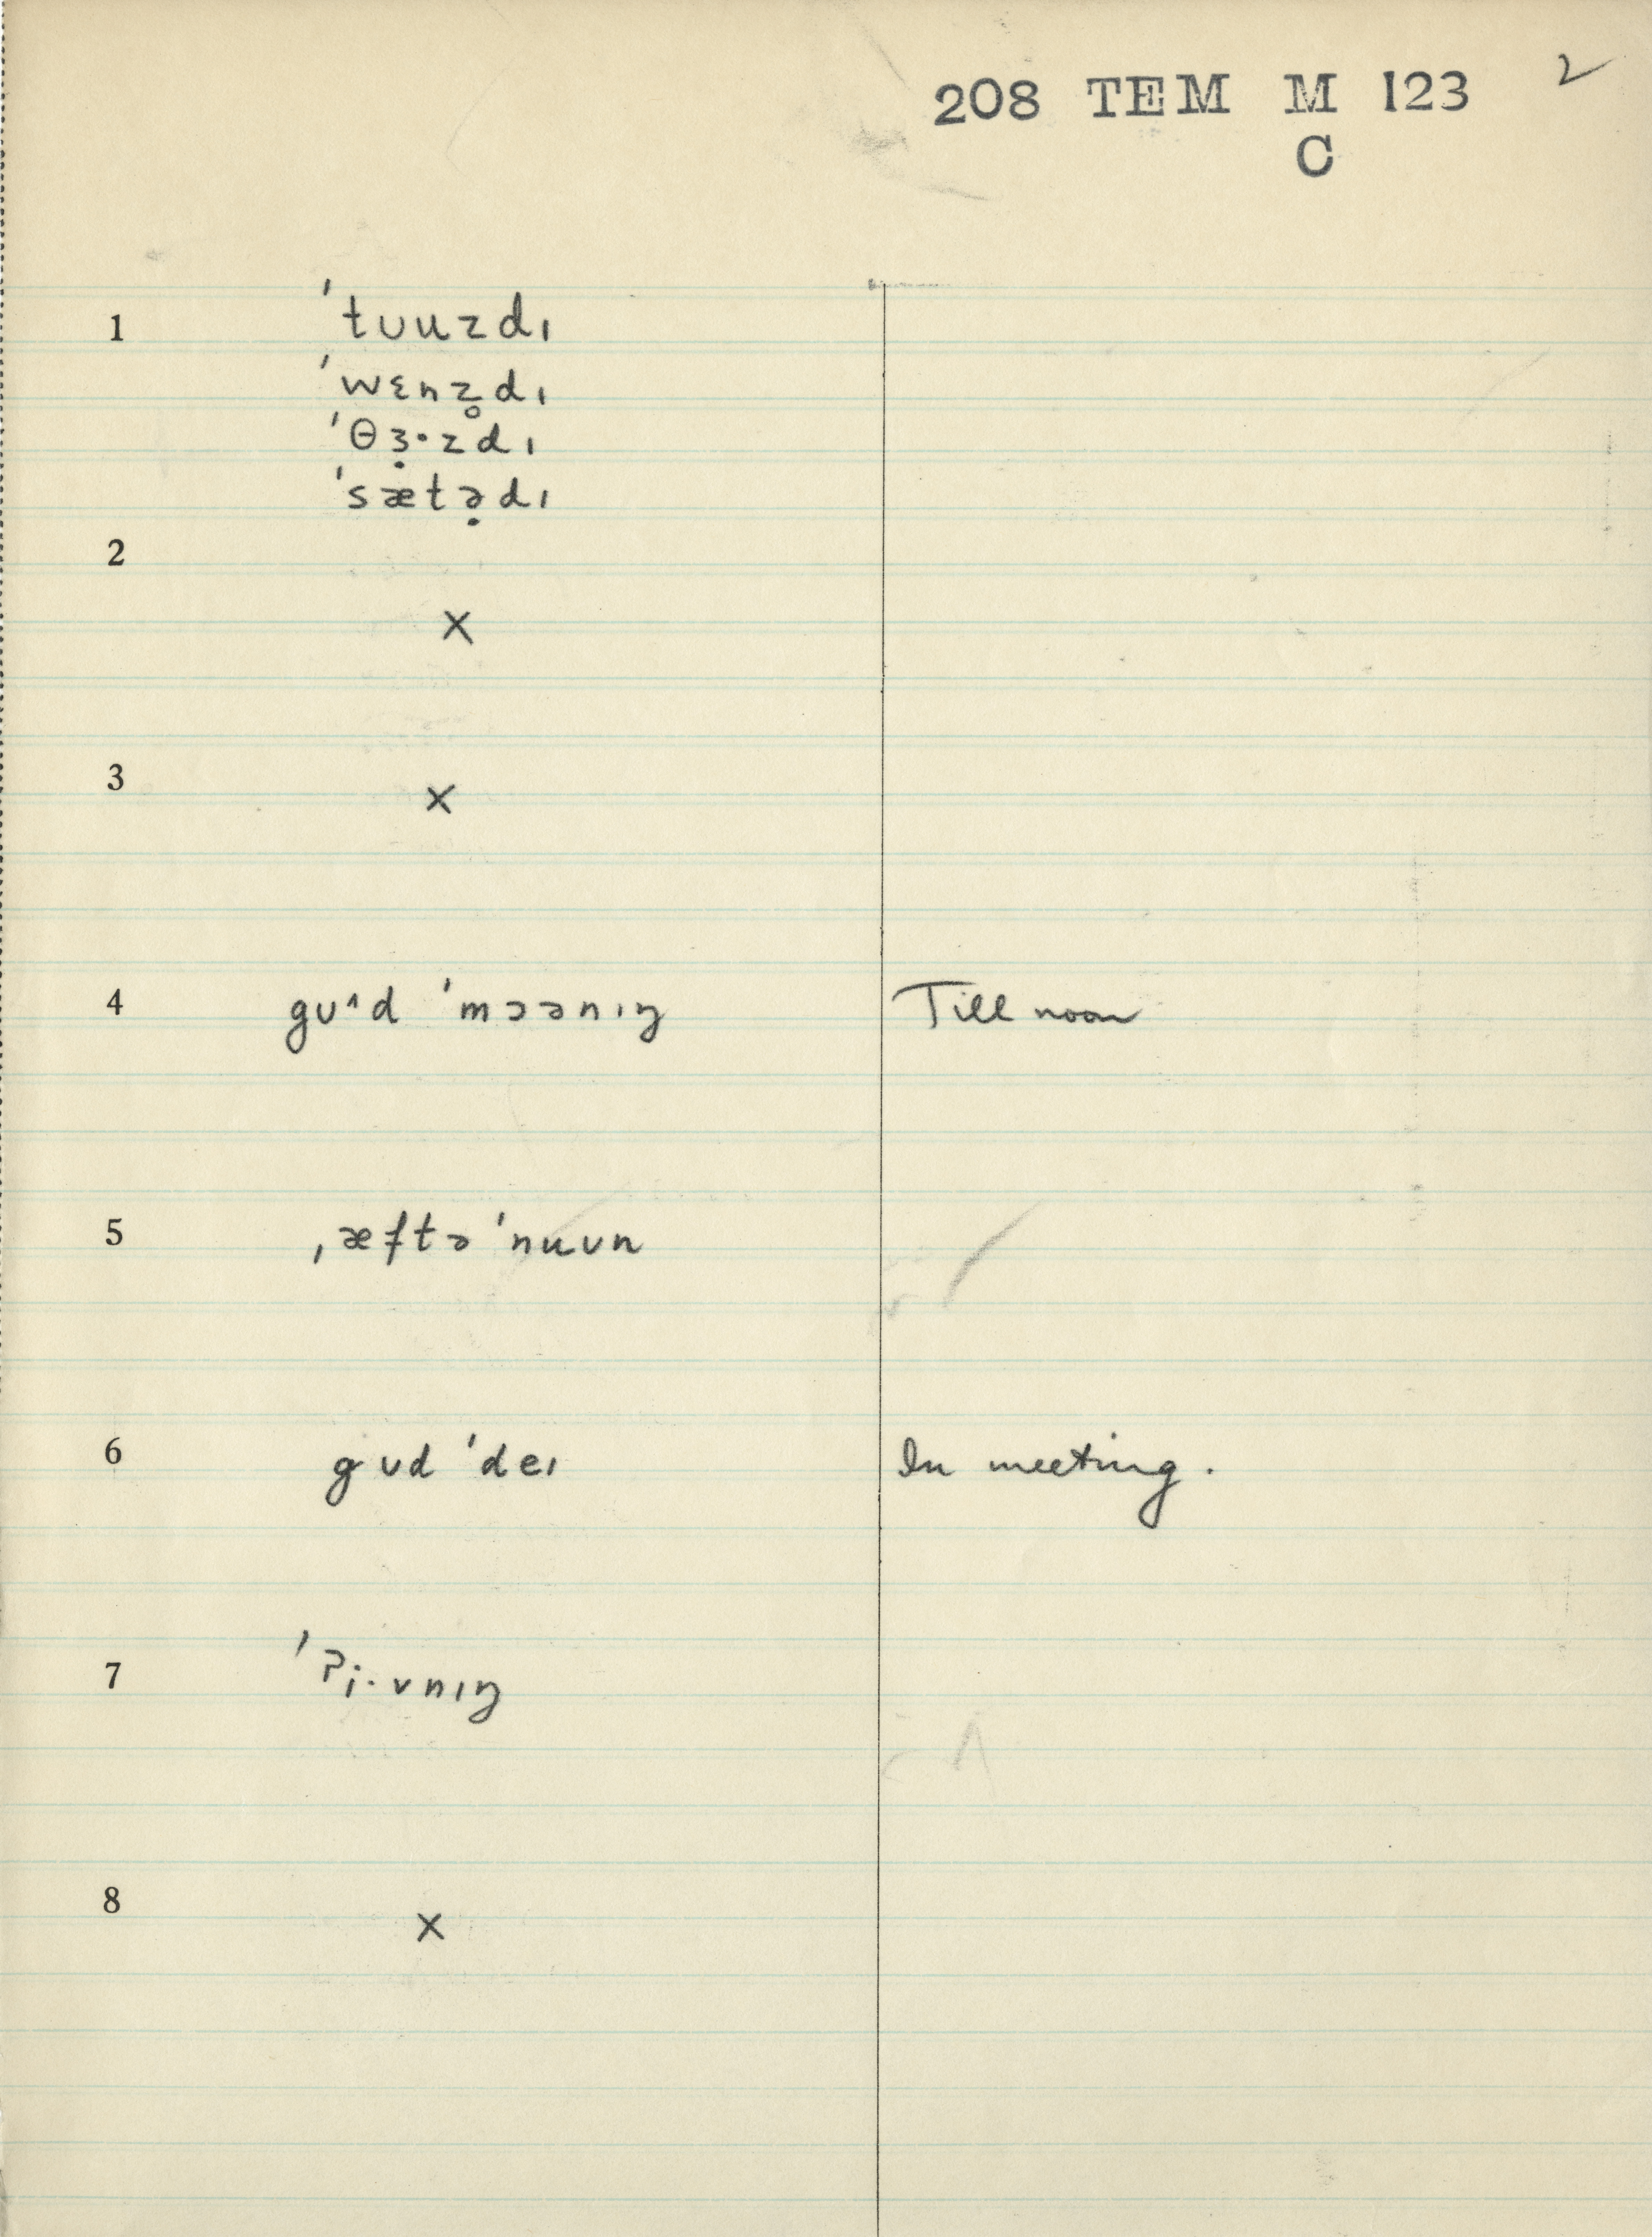 208 TEM M 123 2
C
1 ˈtʊuzdɪ
ˈwɛnz̥dɪ
ˈθɜ̣·zdɪ
ˈsætə̣dɪ
2
×
3 ×
4 gʊ^d ˈmɔənɪŋ Till noon
5 ˌæftəˈnuʊn
6 gʊd ˈdeɪ In meeting.
7 ˈʔi·vnɪŋ
8 ×